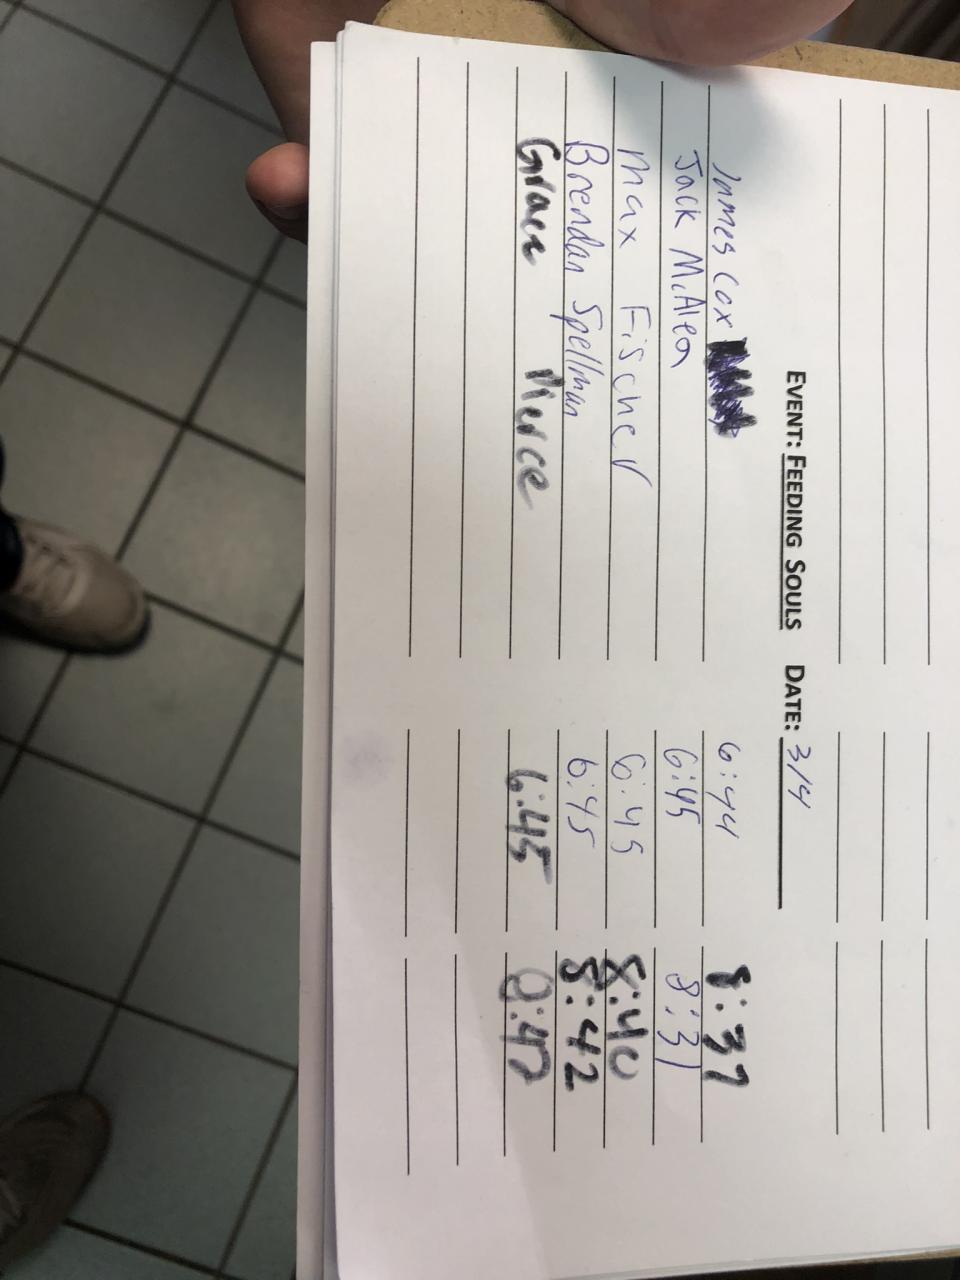 EVENT: FEEDING SOULS DATE: 3/4
James Cox 6:44 8:37
Jack McAlea 6:45 8:31
Max Fischer 6:45 8:40
Brendan Spellman 6:45 8:42
Grace Pierce 6:45 8:42